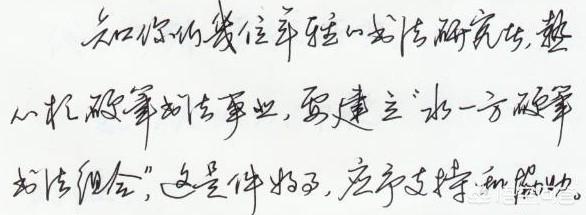 知你们幾位年轻的书法研究生，热
心于硬筆书法事业，要建立“水一方硬筆
书法组合”，这是件好事，应予支持和帮助。